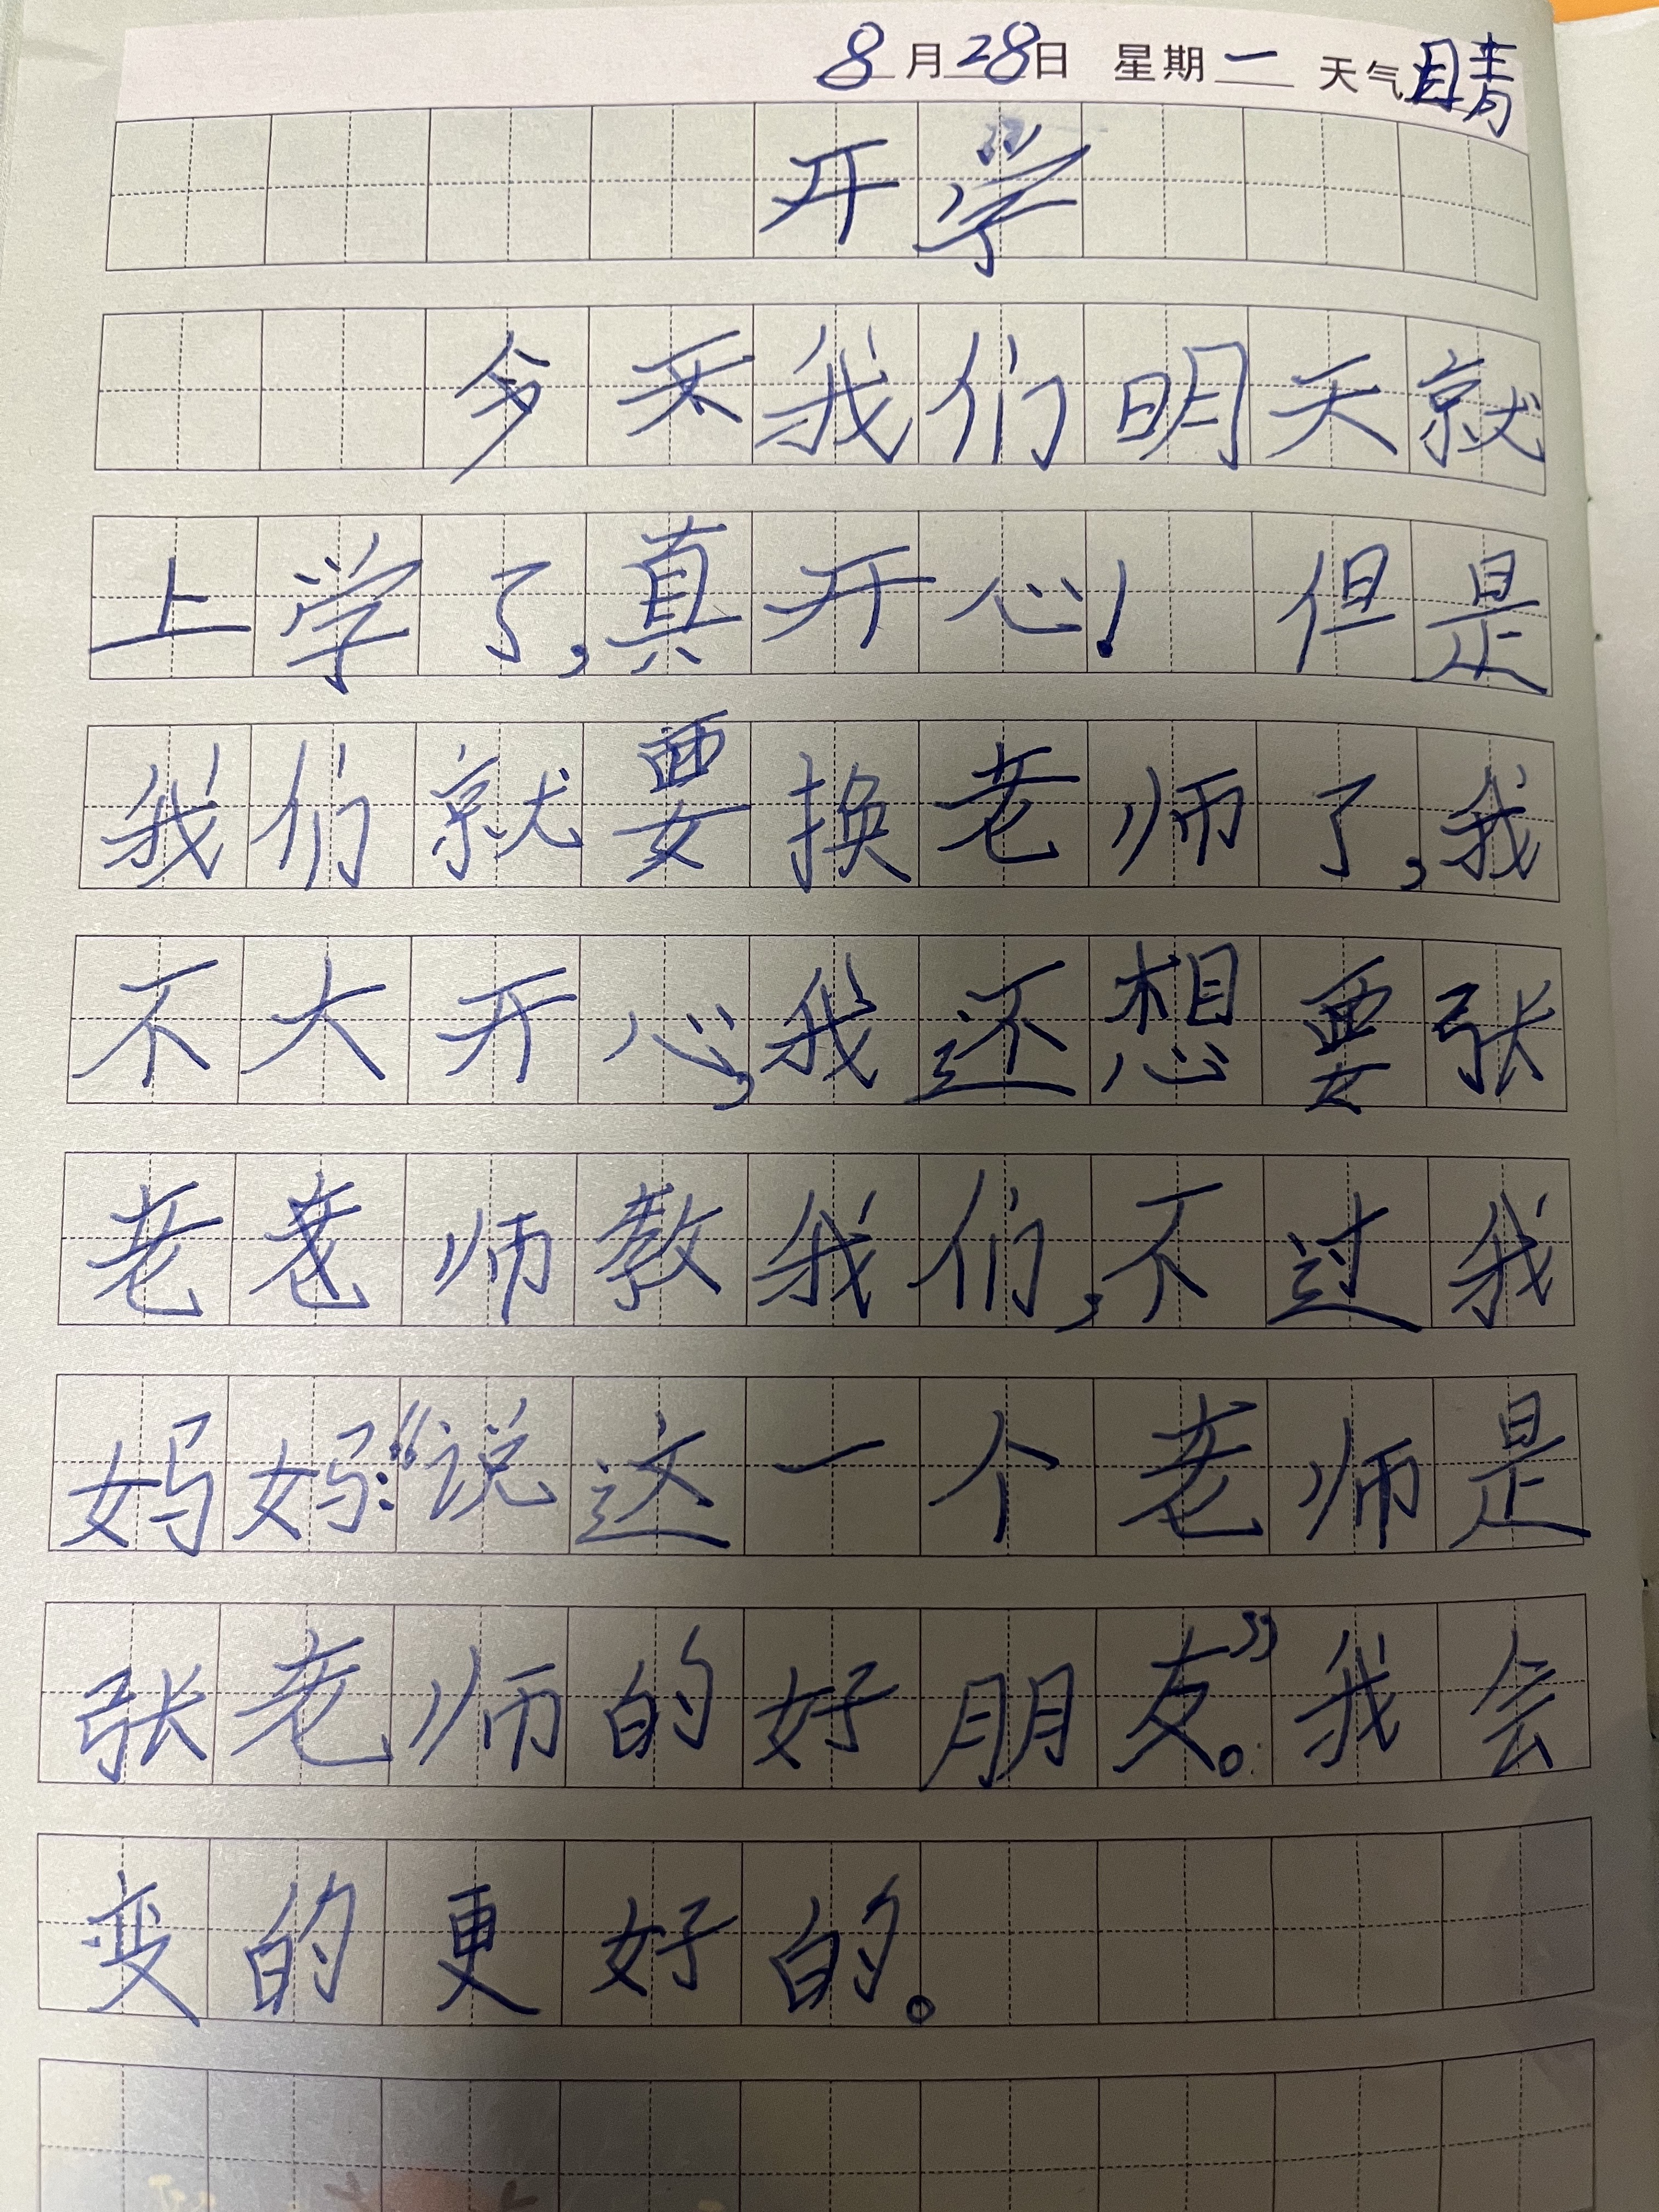 8月28日 星期一 天气睛
开学
我们明天就
上学了,真开心!但是
我们就要换老师了,我
不大开心,我还想要张
老师教我们,不过我
妈妈:“说这一个老师是
张老师的好朋友。”我会
变的更好的。